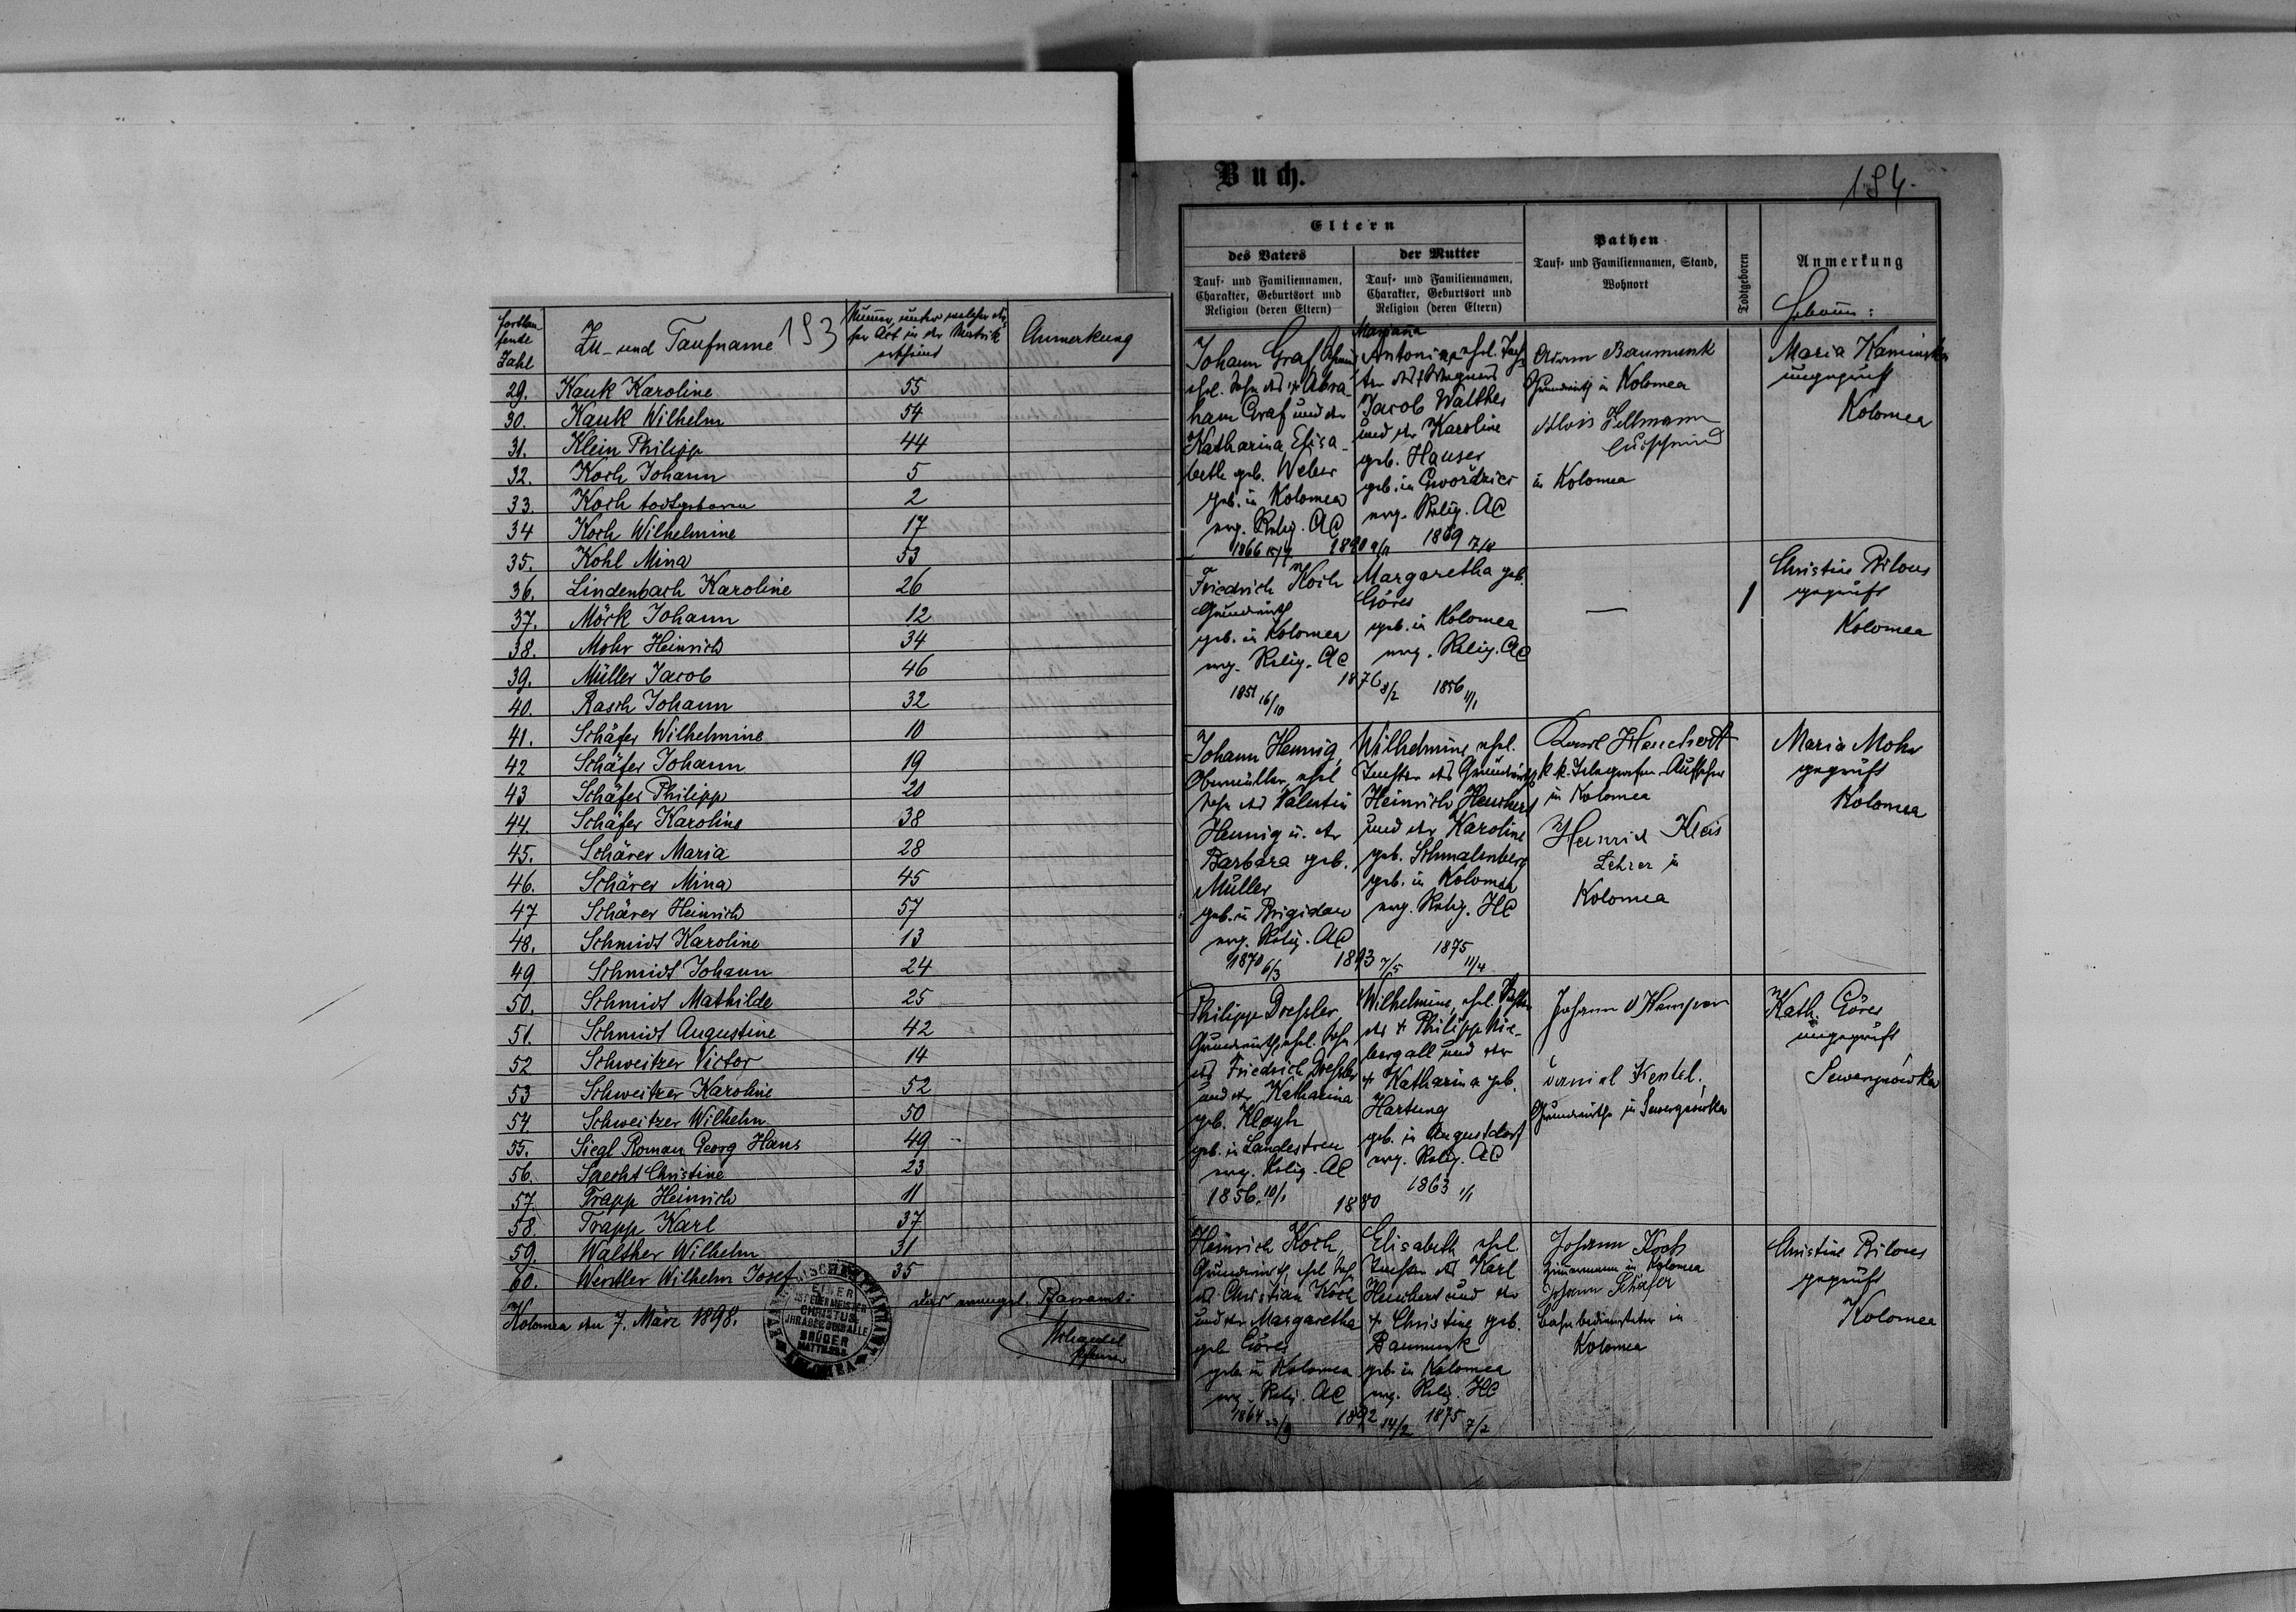 Fortlau-
fende
Zahl
Zu- und Taufname
193
Numer, unter welcher die-
ser Act in der Matrik
erscheint
Anmerkung
29. Kauk Karoline 55
30. Kauk Wilhelm 54
31. Klein Philipp 44
32. Koch Johann 5
33. Koch todtgeboren 2
34 Koch Wilhelmine 17
35. Kohl Mina 53
36. Lindenbach Karoline 26
37. Möck Johann 12
38. Mohr Heinrich 34
39. Müller Jacob 46
40. Rasch Johann 32
41. Schäfer Wilhelmine 10
42 Schäfer Johann 19
43 Schäfer Philipp 20
44. Schäfer Karoline 38
45. Schärer Maria 28
46. Schärer Mina 45
47 Schärer Heinrich 57
48. Schmidt Karoline 13
49 Schmidt Johann 24
50. Schmidt Mathilde 25
51. Schmidt Augustine 42
52 Schweitzer Victor 14
53 Schweitzer Karoline 52
54. Schweitzer Wilhelm 50
55. Siegl Roman Georg Hans 49
56. Specht Christine 23
57. Trapp Heinrich 11
58. Trapp Karl 37
59. Walther Wilhelm 31
60. Wentler Wilhelm Josef 35
Kolomea den 7. März 1898.
das evangel. Pfarramt:
EINER
IST EUER MEISTER
CHRISTUS
IHR ABER SEID ALLE
BRÜDER
MATTH. 23.8.
KOLOMEA
Buch.
194.
Eltern
des Vaters
Tauf- und Familiennamen,
Charakter, Geburtsort und
Religion (deren Eltern)
der Mutter
Tauf- und Familiennamen,
Charakter, Geburtsort und
Religion (deren Eltern)
Pathen
Tauf- und Familiennamen, Stand,
Wohnort
Todtgeboren
Anmerkung
Hebamme:
Johann Graf
ehel. Sohn des † Abra-
ham Graf und der
Katharina Elisa-
beth geb. Weber
geb. in Kolomea
evg. Relig. AC
1866 1890 9/11
Antonina ehel. Toch-
ter des † Wagners
Jacob Walther
und der Karoline
geb. Hauser
geb. in Gwoździec
evg. Relig. AC
1869 7/8
Adam Baumunk
Grundwirth in Kolomea
Alois Hellmann
in Kolomea
Maria Kaminska
ungeprüft
Kolomea
Friedrich Koch
Grundwirth
geb. in Kolomea
evg. Relig. AC
1851 16/10 1876 8/2
Margaretha geb.
Göres
geb. in Kolomea
evg. Relig. AC
1856 11/1
—
1
Christine Bilous
geprüft
Kolomea
Johann Hennig,
Obermüller, ehel.
Sohn des Valentin
Hennig u. der
Barbara geb.
Müller
geb. in Brigidau
evg. Relig. AC
1870 6/3 1893 7/5
Wilhelmine, ehel.
Tochter des Grundwirths
Heinrich Heuchert
und der Karoline
geb. Schmalenberg
geb. in Kolomea
evg. Relig. HC
1875 11/4
Karl Heuchert
k. k. Telegrafen-Aufseher
in Kolomea
Heinrich Kleis
Lehrer in
Kolomea
Maria Mohr
geprüft
Kolomea
Philipp Dressler
Grundwirth, ehel. Sohn
des Friedrich Dressler
und der Katharina
geb.
geb. in Landestreu
evg. Relig. AC
1856. 10/1 1880
Wilhelmine, ehel. Tochter
des † Philipp Nie-
bergall und der
† Katharina geb.
Hartung
geb. in Augustdorf
evg. Relig. AC
1863 1/1
Johann
Daniel Kentel,
Grundwirthe in Sewerynówka
Kath. Göres
ungeprüft
Sewerynówka
Heinrich Koch,
Grundwirth, ehel. Sohn
des Christian Koch
und der Margaretha
geb. Göres
geb. in Kolomea
evg. Relig. AC
1864 1892 14/2
Elisabeth, ehel.
Tochter des Karl
Heuchert und der
† Christine geb.
Baumunk
geb. in Kolomea
evg. Relig. HC
1875 7/2
Johann Koch
Zimmermann in Kolomea
Johann Schäfer
Bahnbediensteter in
Kolomea
Christine Bilous
geprüft
Kolomea